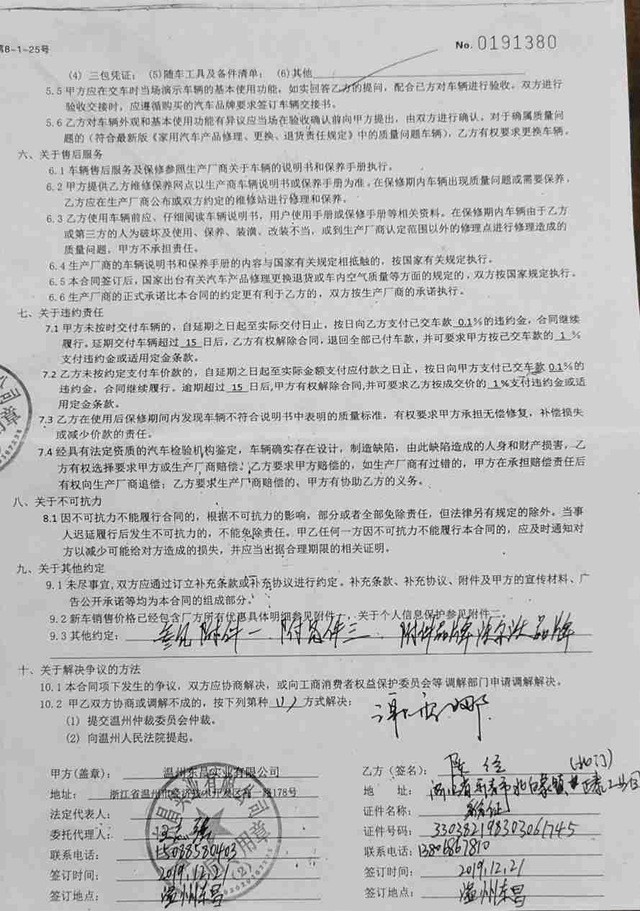 第8-1-25号
No. 0191380
(4) 三包凭证； (5)随车工具及备件清单； (6)其他
5.5 甲方应在交车时当场演示车辆的基本使用功能，如实回答乙方的提问，配合已方对车辆进行验收。双方进行
验收交接时，应遵循购买的汽车品牌要求签订车辆交接书。
5.6 乙方对车辆外观和基本使用功能有异议应当场在验收确认前向甲方提出，由双方进行确认。对于确属质量问
题的（符合最新版《家用汽车产品修理、更换、退货责任规定》中的质量问题车辆），乙方有权要求更换车辆。
六、关于售后服务
6.1 车辆售后服务及保修参照生产厂商关于车辆的说明书和保养手册执行。
6.2 甲方提供乙方维修保养网点以生产商车辆说明书或保养手册为准。在保修期内车辆出现质量问题或需要保养，
乙方应在生产厂商公布或双方约定的维修站进行修理和保养。
6.3 乙方使用车辆前应、仔细阅读车辆说明书，用户使用手册或保修手册等相关资料。在保修期内车辆由于乙方
或第三方的人为破坏及使用、保养、装潢、改装不当，或到生产厂商认定范围以外的修理点进行修理造成的
质量问题，甲方不承担责任。
6.4 生产厂商的车辆说明书和保养手册的内容与国家有关规定相抵触的，按国家有关规定执行。
6.5 本合同签订后，国家出台有关汽车产品修理更换退货或车内空气质量等方面的规定的，双方按国家规定执行。
6.6 生产厂商的正式承诺比本合同的约定更有利于乙方的，双方按生产厂商的承诺执行。
七、关于违约责任
7.1 甲方未按时交付车辆的，自延期之日起至实际交付日止，按日向乙方支付已交车款 0.1%的违约金，合同继续
履行。延期交付车辆超过 15 日后，乙方有权解除合同，退回全部已付车款，并可要求甲方按已交车款的 1 %
支付违约金或适用定金条款。
7.2 乙方未按约定支付车价款的，自延期之日起至实际金额支付应付款之日止，按日向甲方支付已交车款 0.1%的
违约金，合同继续履行。逾期超过 15 日后,甲方有权解除合同,并可要求乙方按成交价的 1%支付违约金或适
用定金条款。
7.3 乙方在使用后保修期间内发现车辆不符合说明书中表明的质量标准，有权要求甲方承担无偿修复，补偿损失
或减少价款的责任。
7.4 经具有法定资质的汽车检验机构鉴定，车辆确实存在设计，制造缺陷，由此缺陷造成的人身和财产损害，乙
方有权选择要求甲方或生产厂商赔偿。乙方要求甲方赔偿的，如生产厂商有过错的，甲方在承担赔偿责任后
有权向生产厂商追偿；乙方要求生产厂商赔偿的，甲方有协助乙方的义务。
八、关于不可抗力
8.1 因不可抗力不能履行合同的，根据不可抗力的影响，部分或者全部免除责任，但法律另有规定的除外。当事
人迟延履行后发生不可抗力的，不能免除责任。甲乙任何一方因不可抗力不能履行本合同的，应及时通知对
方以减少可能给对方造成的损失，并应当出据合理期限的相关证明。
九、关于其他约定
9.1 未尽事宜,双方应通过订立补充条款或补充协议进行约定。补充条款、补充协议、附件及甲方的宣传材料、广
告公开承诺等均为本合同的组成部分。
9.2 新车销售价格已经包含厂方所有优惠具体明细参见附件一，关于个人信息保护参见附件二。
9.3 其他约定： 参见附件一 附件三 附件品牌 品牌
十、关于解决争议的方法
10.1 本合同项下发生的争议，双方应协商解决，或向工商消费者权益保护委员会等调解部门申请调解解决。
10.2 甲乙双方协商或调解不成的，按下列第种 (1) 方式解决：
(1) 提交温州仲裁委员会仲裁。
(2) 向温州人民法院提起。
甲方（盖章）： 温州东昌实业有限公司
地址： 浙江省温州市经济技术开发区 一路178号
法定代表人：
委托代理人：
联系电话： 15088580403
签订时间： 2019.12.21
签订地点： 温州东昌
乙方（签名）：
地 址：
证件名称： 身份证
证件号码： 330382198303061745
联系电话： 13806867810
签订时间： 2019.12.21
签订地点： 温州东昌